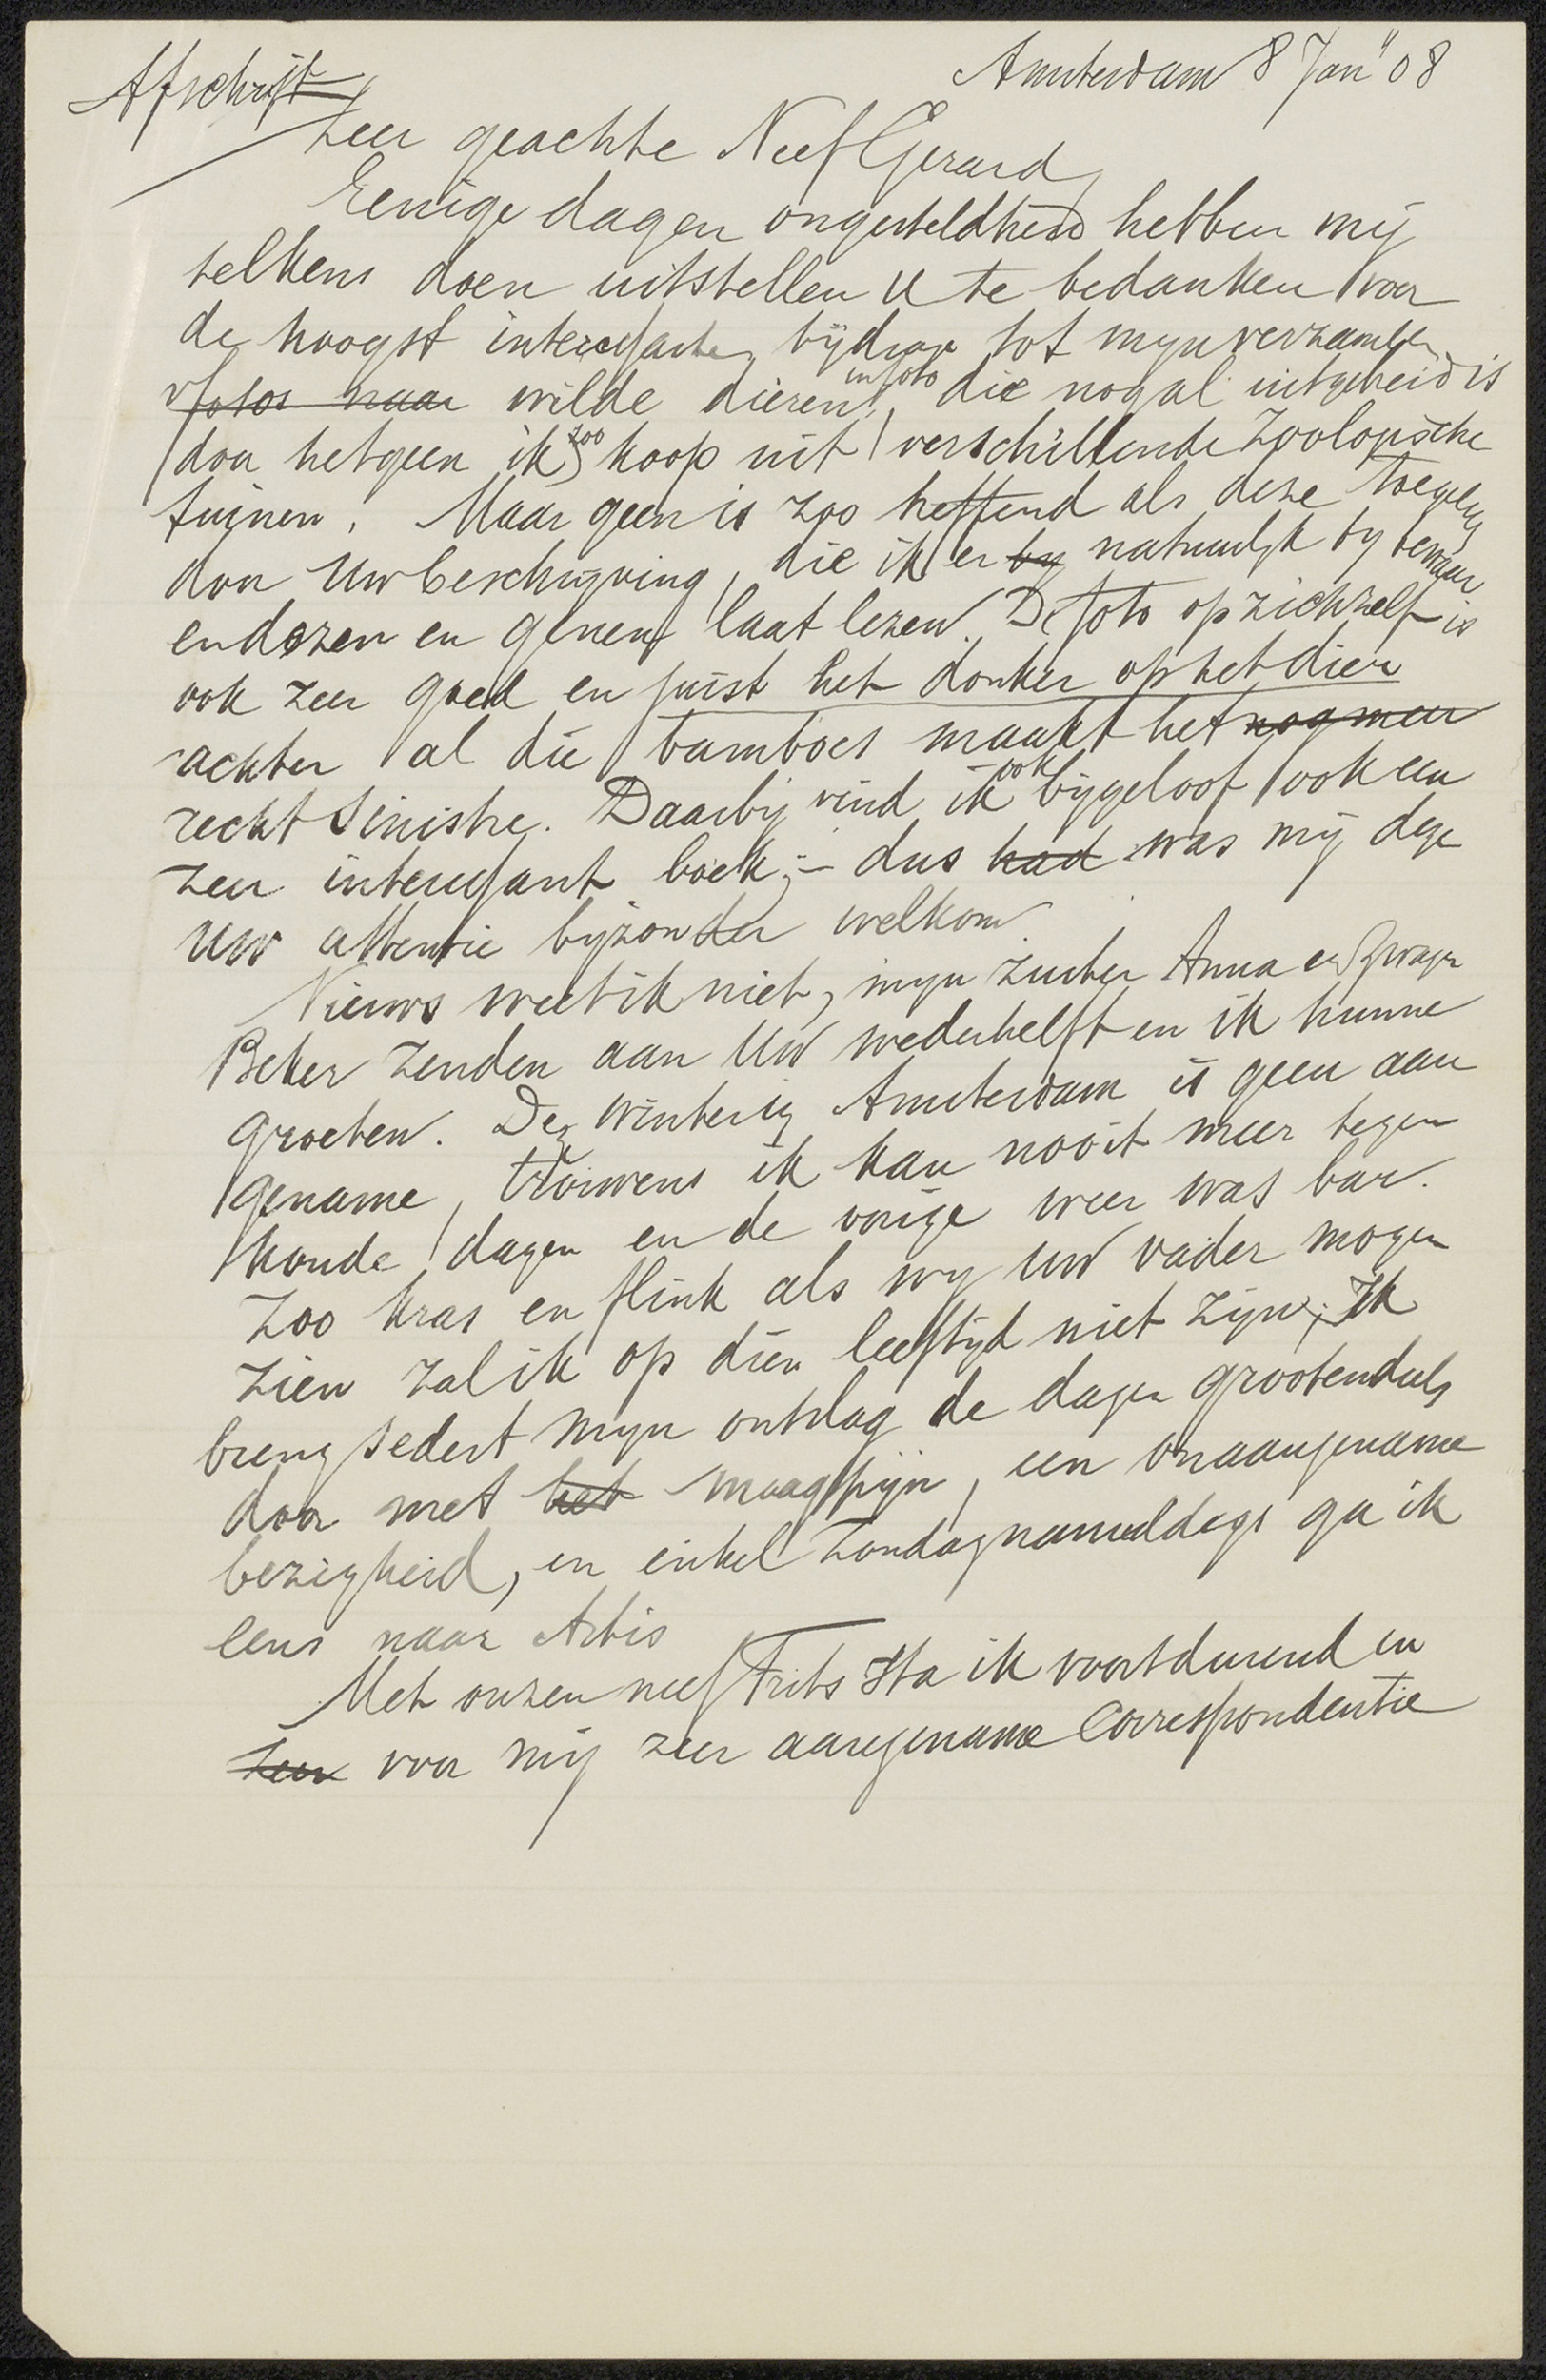 Afschrift
Amsterdam 8 Jan" 08
Zeer geachte Neef Gerard,
Eenige dagen ongesteldheid hebben mij
telkens doen uitstellen U te bedanken voor
de hoogst interessante bijdrage tot mijn verzameling
fotos naar wilde dieren in foto, die nogal uitgebreid is
door hetgeen ik zoo koop uit verschillende Zoologische
tuinen. Maar geen is zoo treffend als deze toegelicht
door Uw beschrijving, die ik er by natuurlijk bij bewaar
en dezen en genen laat lezen. De foto op zichzelf is
ook zeer goed en juist het donker op het dier
achter al die bamboes maakt het nog meer
recht sinistre. Daarbij vind ik ook bijgeloof ook een
zeer interessant boek; – dus had was mij deze
Uw attentie bijzonder welkom.
Nieuws weet ik niet, mijn zuster Anna en Zwager
Beker zenden aan Uw wederhelft en ik hunne
groeten. De winter in Amsterdam is geen aan
gename, trouwens ik kan nooit meer tegen
koude dagen en de vorige weer was bar.
Zoo kras en flink als wij Uw vader mogen
zien zal ik op dien leeftijd niet zijn; Ik
breng sedert mijn ontslag de dagen grootendeels
door met het maagpijn, een onaangename
bezigheid, en enkel Zondagnamiddags ga ik
eens naar Artis
Met onzen neef Frits sta ik voortdurend en
zeer voor mij zeer aangename Correspondentie